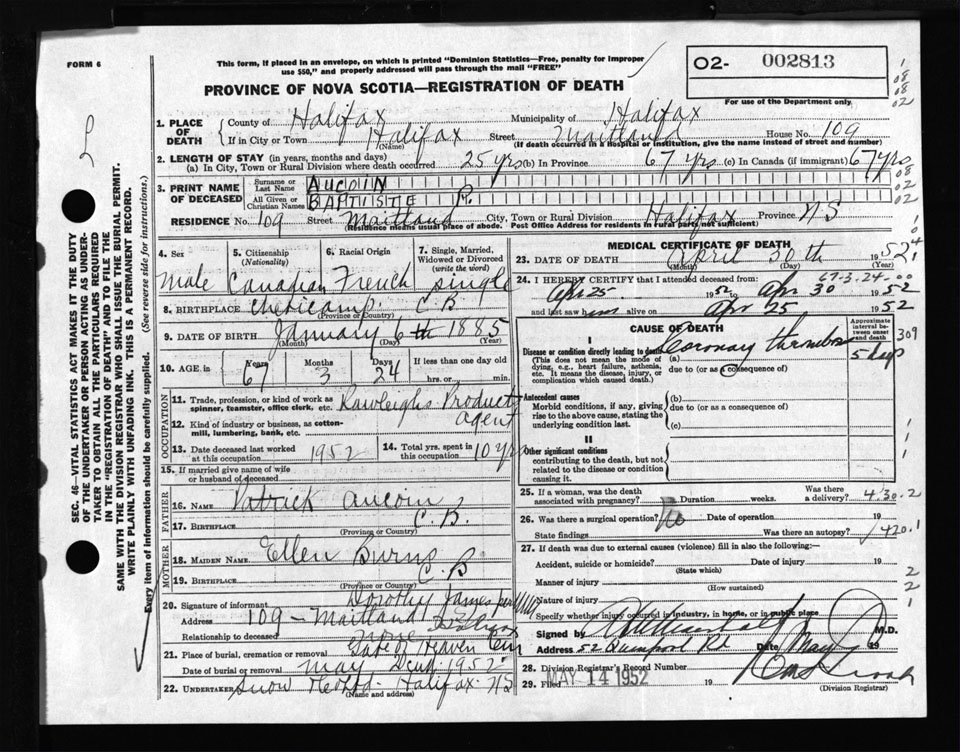 FORM 6
This form, if placed in an envelope, on which is printed "Dominion Statistics—Free, penalty for improper
use $50," and properly addressed will pass through the mail "FREE"
O2- 002813
For use of the Department only.
PROVINCE OF NOVA SCOTIA—REGISTRATION OF DEATH
1. PLACE OF DEATH
County of Halifax Municipality of Halifax
If in City or Town Halifax Street Maitland House No. 109
(Name) (If death occurred in a hospital or institution, give the name instead of street and number)
2. LENGTH OF STAY (in years, months and days)
(a) In City, Town or Rural Division where death occurred 25 yrs (b) In Province 67 yrs (c) In Canada (if immigrant) 67 yrs
3. PRINT NAME OF DECEASED
Surname or Last Name AUCOIN
All Given or Christian Names BAPTISTE P.
RESIDENCE No. 109 Street Maitland City, Town or Rural Division Halifax Province NS
(Residence means usual place of abode. Post Office Address for residents in rural parts not sufficient)
4. Sex
Male
5. Citizenship (Nationality)
Canadian
6. Racial Origin
French
7. Single, Married, Widowed or Divorced (write the word)
Single
8. BIRTHPLACE Cheticamp C.B
(Province or Country)
9. DATE OF BIRTH January 6th 1885
(Month) (Day) (Year)
10. AGE in
Years 67
Months 3
Days 24
If less than one day old
hrs. or min.
OCCUPATION
11. Trade, profession, or kind of work as spinner, teamster, office clerk, etc. Rawleighs Product agent
12. Kind of industry or business, as cotton-mill, lumbering, bank, etc.
13. Date deceased last worked at this occupation 1952
14. Total yrs. spent in this occupation 10 yrs
15. If married give name of wife or husband of deceased
FATHER
16. NAME Patrick Aucoin
17. BIRTHPLACE C.B.
(Province or Country)
MOTHER
18. MAIDEN NAME Ellen Burns
19. BIRTHPLACE C B
(Province or Country)
20. Signature of informant Dorothy James
Address 109 - Maitland Halifax
Relationship to deceased none
21. Place of burial, cremation or removal Gate of Heaven Cem
Date of burial or removal May 2nd 1952
22. UNDERTAKER Snow Halifax NS
(Name and address)
MEDICAL CERTIFICATE OF DEATH
23. DATE OF DEATH April 30th 1952
(Month) (Day) (Year)
67-3-24
24. I HEREBY CERTIFY that I attended deceased from:
Apr 25 1952 to Apr 30 1952
and last saw him alive on Apr 25 1952
CAUSE OF DEATH
Approximate interval between onset and death
I
Disease or condition directly leading to death (a) Coronary thrombosis 5 days
(This does not mean the mode of dying, e.g., heart failure, asthenia, etc. It means the disease, injury, or complication which caused death.)
due to (or as a consequence of)
309
Antecedent causes
Morbid conditions, if any, giving rise to the above cause, stating the underlying condition last.
(b)
due to (or as a consequence of)
(c)
II
Other significant conditions
contributing to the death, but not related to the disease or condition causing it.
25. If a woman, was the death associated with pregnancy? Duration weeks. Was there a delivery? 4.30.2
26. Was there a surgical operation? No Date of operation 19
State findings Was there an autopsy? 420.1
27. If death was due to external causes (violence) fill in also the following:—
Accident, suicide or homicide? Date of injury 19
(State which)
Manner of injury
(How sustained)
Nature of injury
Specify whether injury occurred in industry, in home, or in public place
Signed by M.D.
Address 52 Quinpool Rd Date May 19
28. Division Registrar's Record Number
29. Filed MAY 14 1952 19
(Division Registrar)
SEC. 46—VITAL STATISTICS ACT MAKES IT THE DUTY
OF THE UNDERTAKER OR PERSON ACTING AS UNDER-
TAKER TO OBTAIN ALL THE PARTICULARS REQUIRED
IN THE "REGISTRATION OF DEATH" AND TO FILE THE
SAME WITH THE DIVISION REGISTRAR WHO SHALL ISSUE THE BURIAL PERMIT.
WRITE PLAINLY WITH UNFADING INK. THIS IS A PERMANENT RECORD.
Every item of information should be carefully supplied. (See reverse side for instructions.)